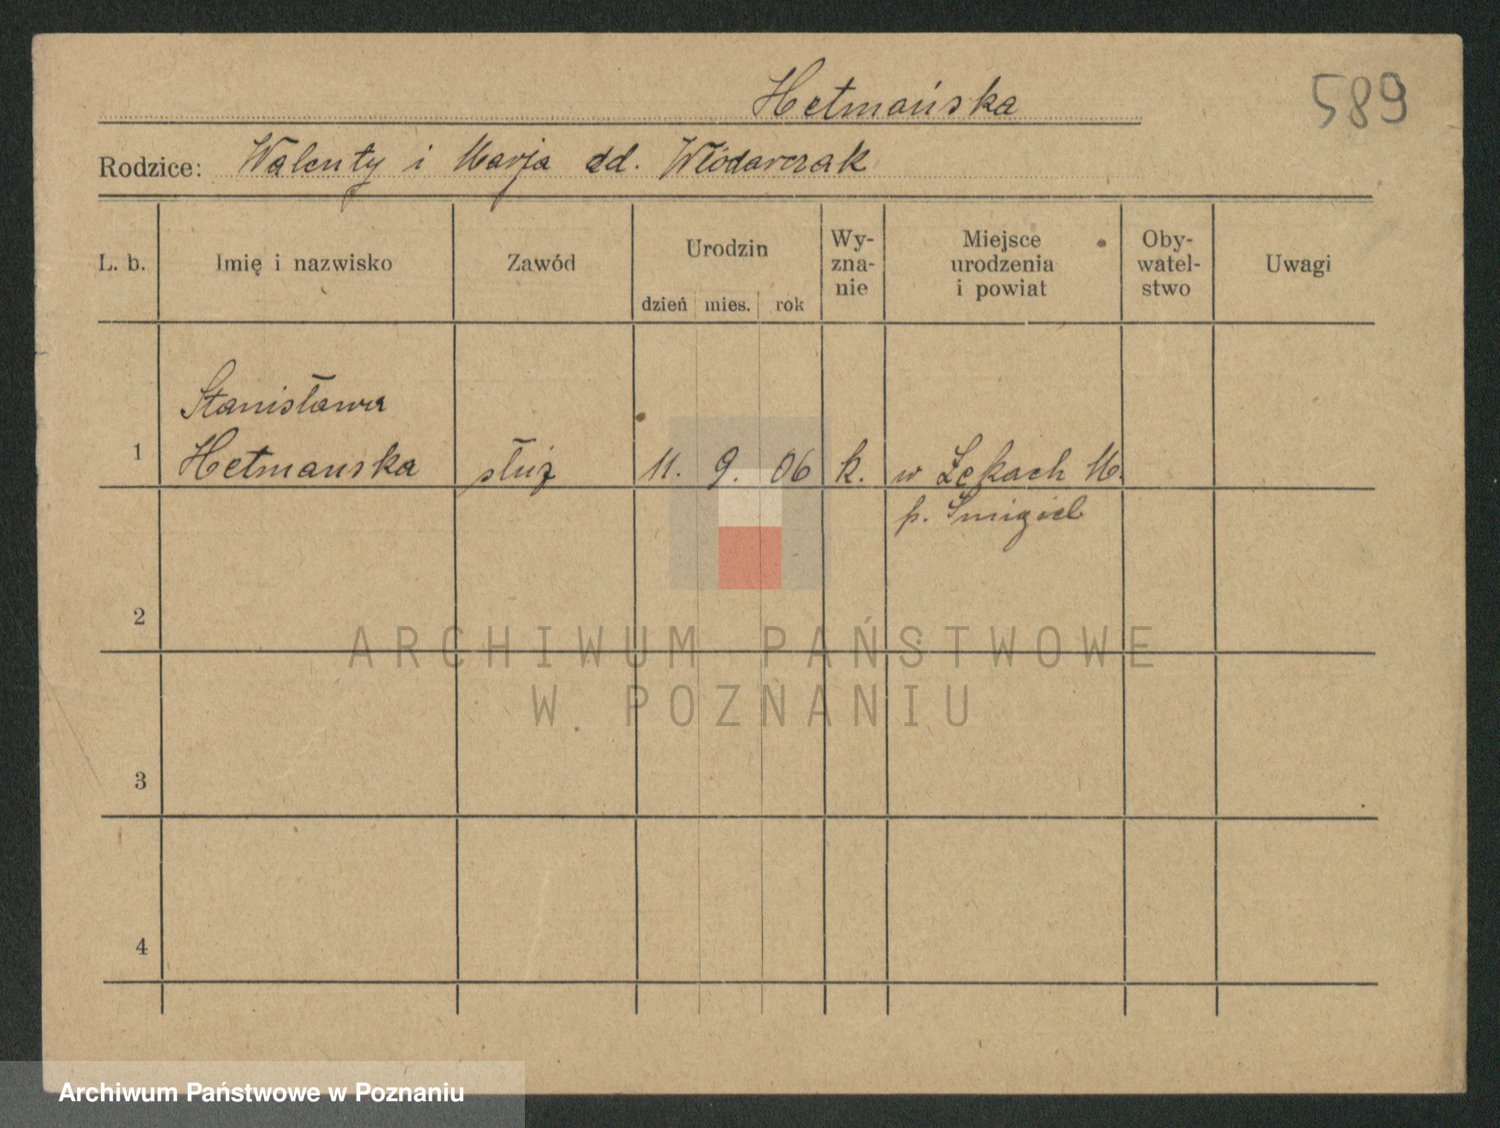 Hetmańska
589
Rodzice: Walenty i Marja dd. Włodarczak
L. b.
Imię i nazwisko
Zawód
Urodzin
dzień mies. rok
Wy-
zna-
nie
Miejsce
urodzenia
i powiat
Oby-
watel-
stwo
Uwagi
Stanisława
1 Hetmanska służ 11. 9. 06 k. w Łękach M.
p. Śmigiel
2
3
4
ARCHIWUM PAŃSTWOWE
W POZNANIU
Archiwum Państwowe w Poznaniu